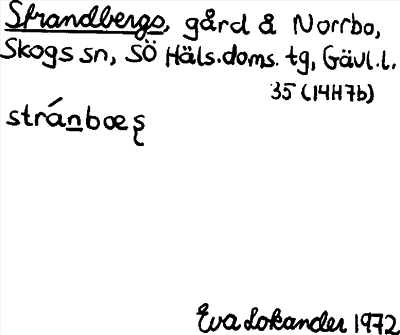 Strandbergs, gård å Norrbo,
Skogs sn, SÖ Häls.doms. tg, Gävl.l.
35 (14H7b)
stránbœş
Eva Lokander 1972